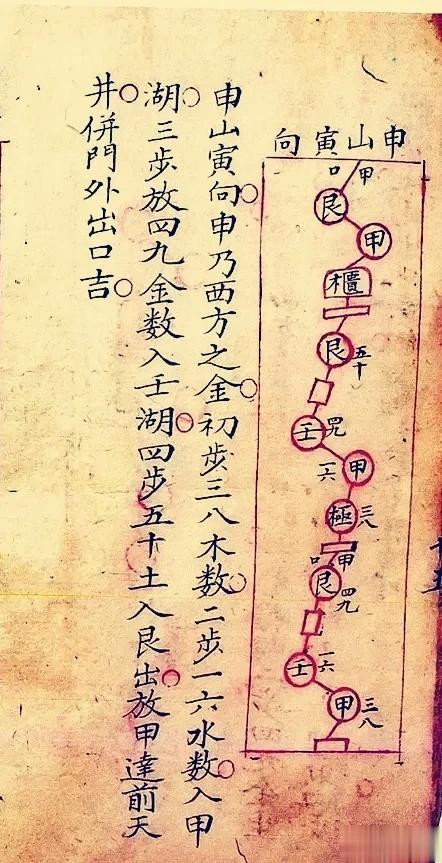 申山寅向
甲
口
艮
甲
櫃
艮
五十
壬
四九
甲
一六
極
三八
甲
口
艮
四九
壬
一六
甲
三八
申山寅向○申乃西方之金○初步三八木数○二步一六水数○入甲
湖○三步放四九金数入壬湖○四步五十土入艮出○放甲達前天
井○併門外出口吉○